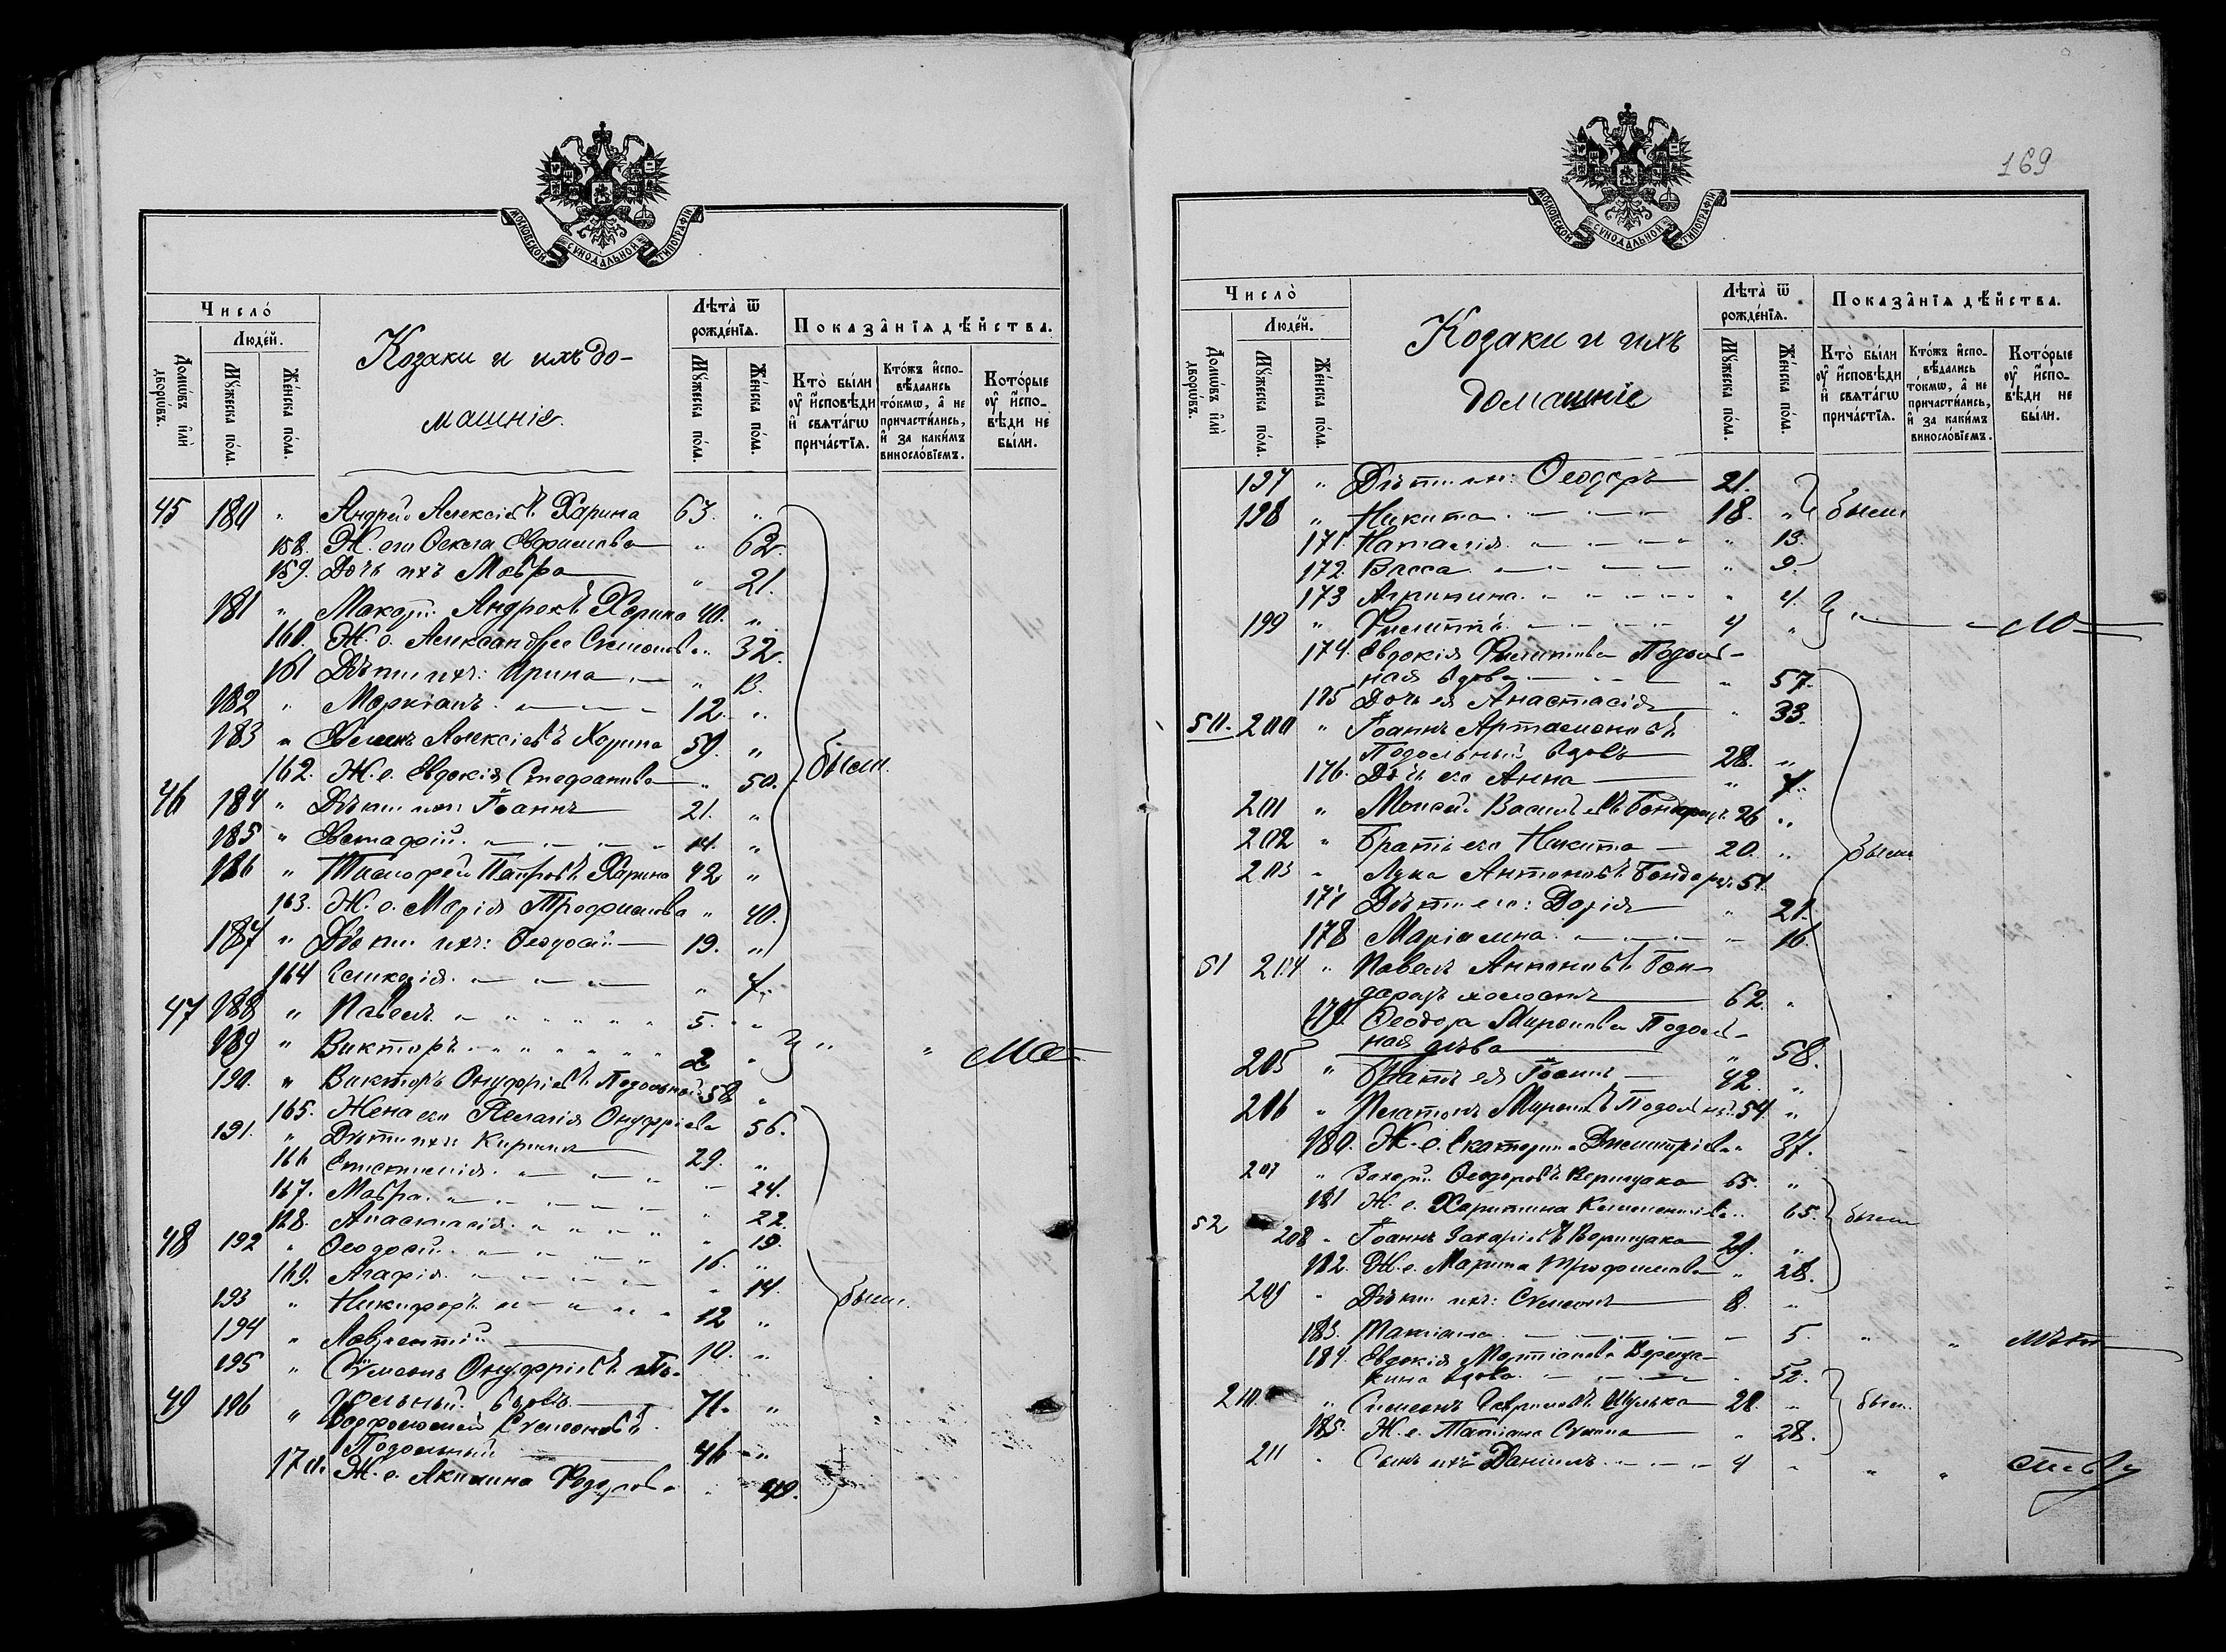 МОСКОВСКОЙ СѴНОДАЛЬНОЙ ТИПОГРАФІИ
Число̀
Людéй.
Домѡвъ и҆лѝ дворѡвъ.
Мꙋжеска по́ла.
Же́нска по́ла.
Козаки и ихъ до-
машніе.
Лѣта̀ ѿ рожде́нїѧ.
Мꙋжеска по́ла.
Же́нска по́ла.
Показа̂нїѧ дѣ́йства.
Кто̀ бы́ли оу҆ и҆сповѣди и҆ свѧта́гѡ прича́стїѧ.
Кто́жъ и҆спо-вѣдались то́кмѡ, а҆ не причасти́лись, и҆ за каки́мъ винослóвїемъ.
Кото́рые оу҆ и҆спо-вѣди не бы́ли.
45 180 " Андрей Алексіевъ Харина 63. "
158. Ж. его Ѳекла Евфимова " 62.
159. Дочь ихъ Мавра " 21.
181 " Макарій Андреевъ Харина 40. "
160. Ж. е. Александра Сѵмеонова " 32.
161 Дѣти ихъ: Ирина " 13.
182 " Маркіанъ 12. "
183 " Филипъ Алексіевъ Харина 59. "
162. Ж. е. Евдокія Стефанова " 50. были.
46 184 " Дѣти ихъ: Іоаннъ 21. "
185 " Евстафій 14. "
186 " Тимофей Петровъ Харина 42 "
163. Ж. е. Марія Трофимова " 40.
187 " Дѣти ихъ: Ѳеодосій 19. "
164 Гликерія " 7.
47 188 " Павелъ 5. "
189 " Викторъ 2 " " " Мал
190. " Викторъ Онуфріевъ Подольный 58 "
165. Жена его Пелагія Онуфріева 56.
191. " Дѣти ихъ Кирилъ 29. "
166 Епистимія 24.
167. Мавра " 22.
168. Анастасія " 19.
48 192 " Ѳеодосій 16. "
169. Агафія " 14.
193 " Никифоръ 12 " были.
194 " Лаврентій 10. "
195 " Сѵмеонъ Онуфріевъ По-
дольный вдовъ 71. "
49 196 " Варфоломей Сѵмеоновъ
Подольный 46 "
170. Ж. е. Акилина Федорова " 49.
169
МОСКОВСКОЙ СѴНОДАЛЬНОЙ ТИПОГРАФІИ
Число̀
Людéй.
Домѡвъ и҆лѝ дворѡвъ.
Мꙋжеска по́ла.
Же́нска по́ла.
Козаки и ихъ
домашніе
Лѣта̀ ѿ рожде́нїѧ.
Мꙋжеска по́ла.
Же́нска по́ла.
Показа̂нїѧ дѣ́йства.
Кто̀ бы́ли оу҆ и҆сповѣди и҆ свѧта́гѡ прича́стїѧ.
Кто́жъ и҆спо-вѣдались то́кмѡ, а҆ не причасти́лись, и҆ за каки́мъ винослóвїемъ.
Кото́рые оу҆ и҆спо-вѣди не бы́ли.
197 " Дѣти ихъ: Ѳеодоръ 21.
198 " Никита 18. " были
171. Наталія " 13.
172. Васса " 9.
173 Агрипина " 4.
199 " Филиппъ 4 "
174. Евдокія Филипова Подоль-
ная вдова " 57.
175 Дочь ея Анастасія " 33.
50. 200 " Іоаннъ Артамоновъ
Подольный вдовъ 28. "
176. Дочь его Анна " 7.
201 " Моисей Васильевъ Бондарецъ 26 "
202 " Братъ его Никита 20. " были
203 " Лука Антоновъ Бондарецъ 51.
177 Дѣти его: Дарія " 21.
178 Маріамна " 16.
51 204 " Павелъ Антоновъ Бон-
дарецъ холостъ 62. "
179. Ѳеодора Миронова Подоль-
ная дѣва " 58.
205 " Братъ ея Іоаннъ 42. "
206 " Платонъ Мироновъ Подольный 54 "
180. Ж. е. Екатерина Димитріева " 37.
207 " Захарій Ѳеодоровъ Верещака 65. "
181 Ж. е. Харитина Климентіева " 65. были
52 208 " Іоаннъ Захаріевъ Верещака 29. "
182. Ж. е. Марина Трофимова " 28.
209 " Дѣти ихъ: Сѵмеонъ 8. "
183. Татіана 5. " "
184. Евдокія Мартіанова Вереща-
кина вдова " 52.
210 " Симеонъ Гавриловъ Шулька 28 " были.
185. Ж. е. Татіана Саввина " 28.
211 " Сынъ ихъ Даніилъ 4 " " "